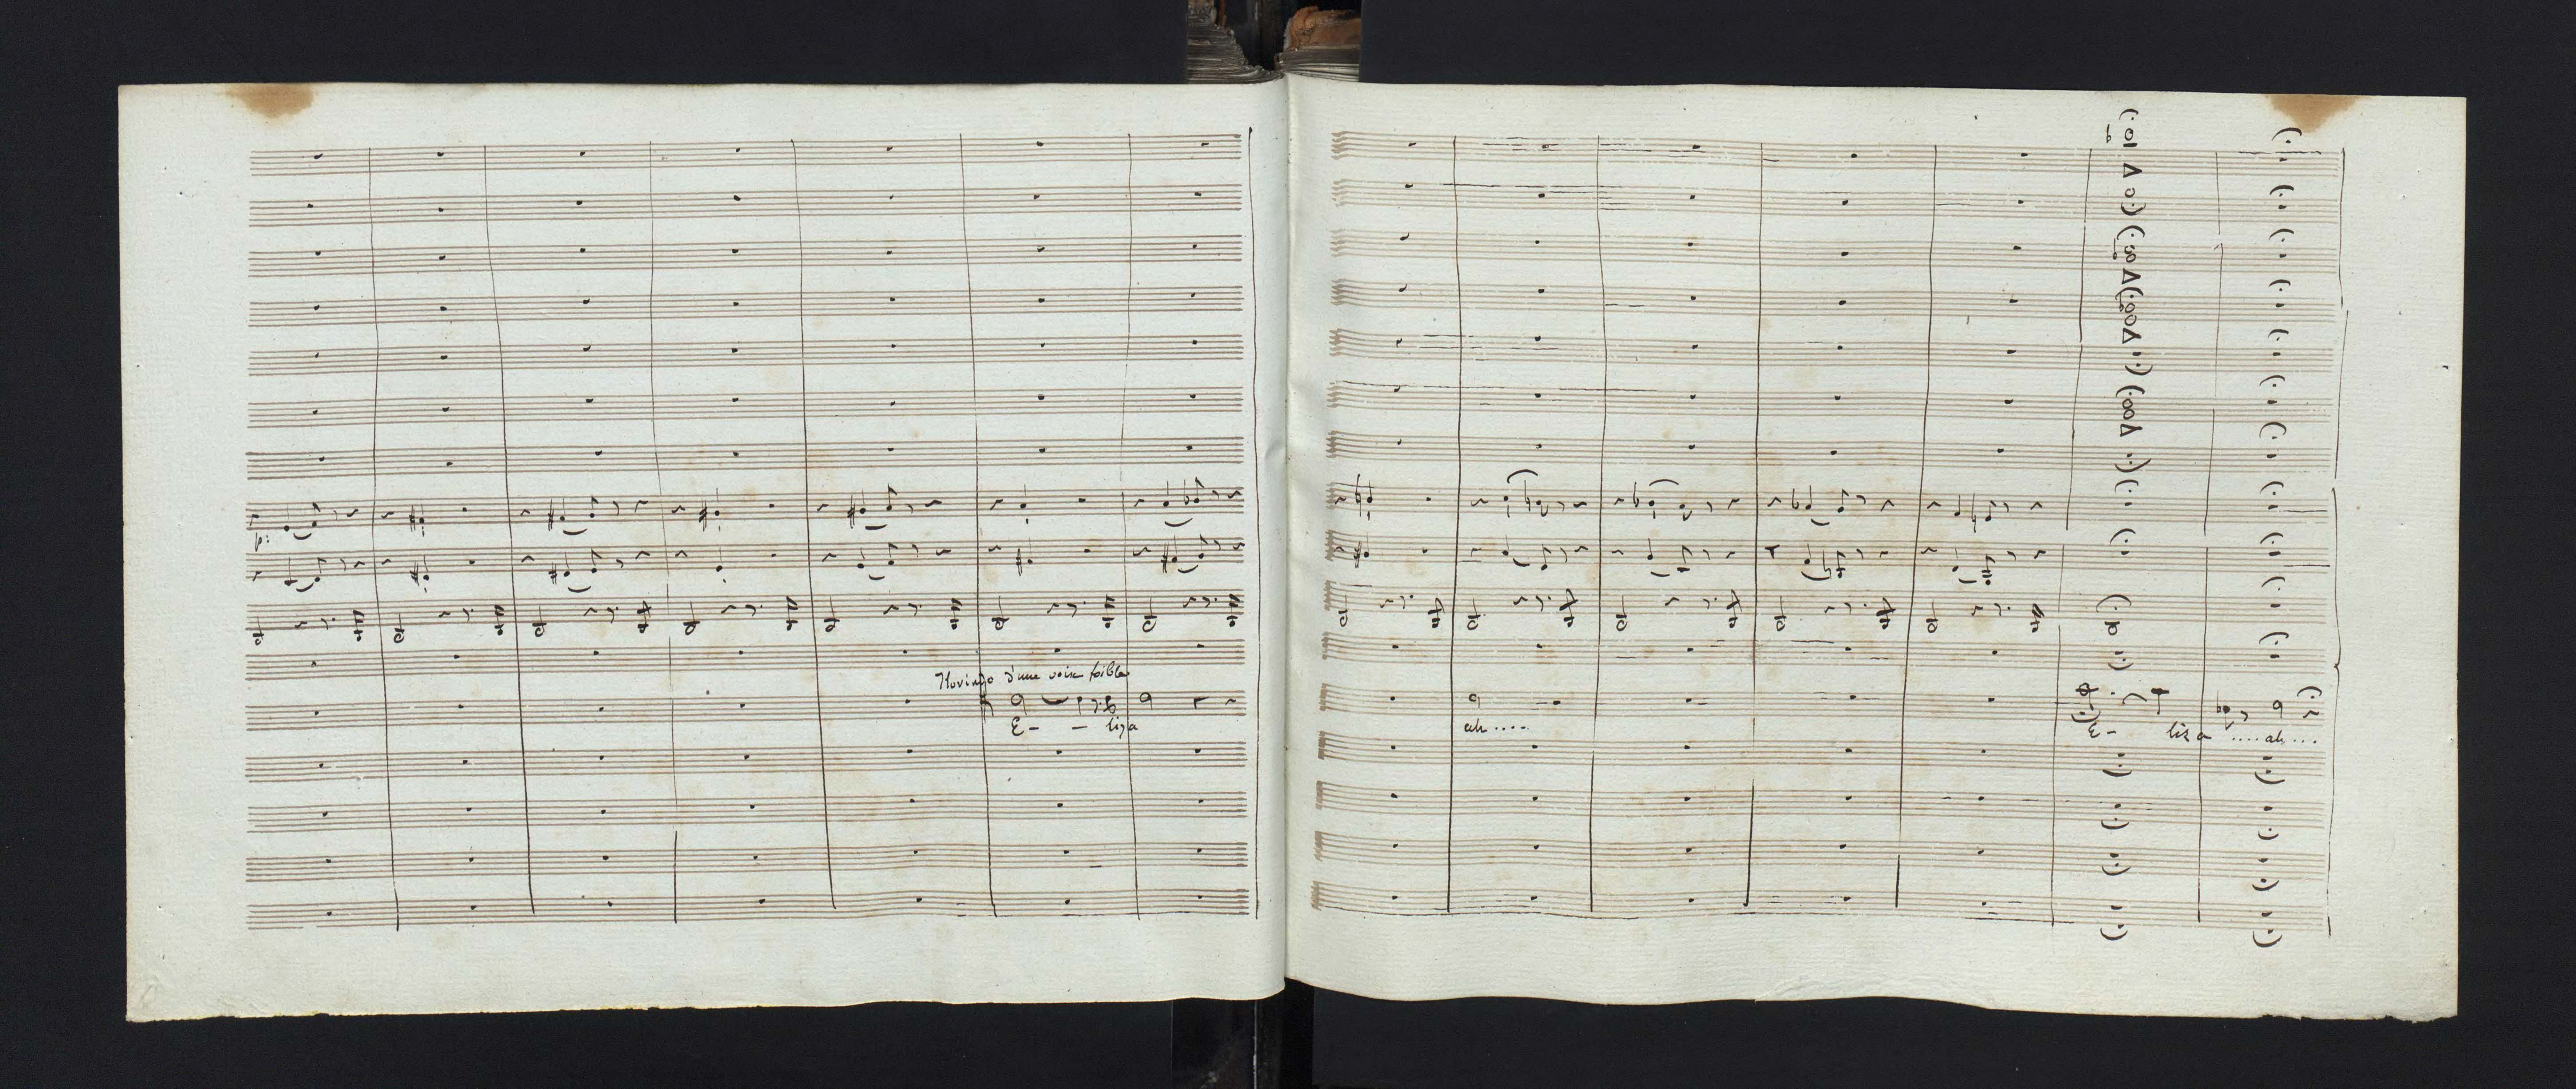 p:
Florindo d'une voix foible
E- - liza
ah ....
E- liza ....ah...